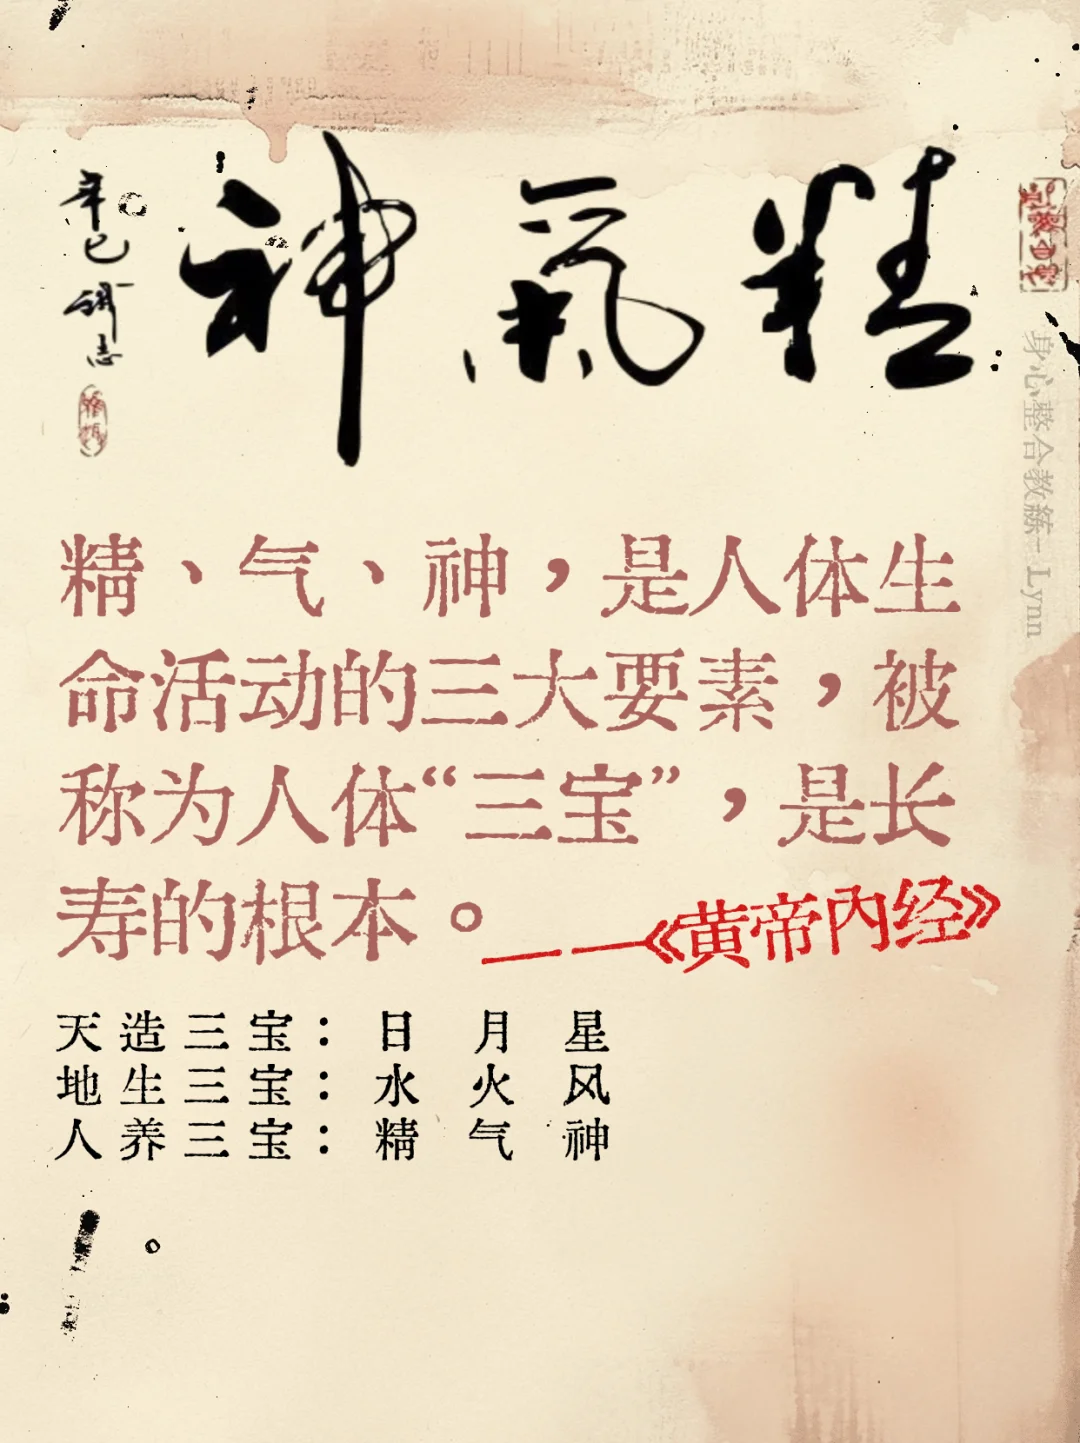 精氣神
辛巳
身心整合教練-Lynn
精、气、神，是人体生
命活动的三大要素，被
称为人体“三宝”，是长
寿的根本。
——《黄帝内经》
天造三宝：日 月 星
地生三宝：水 火 风
人养三宝：精 气 神
。